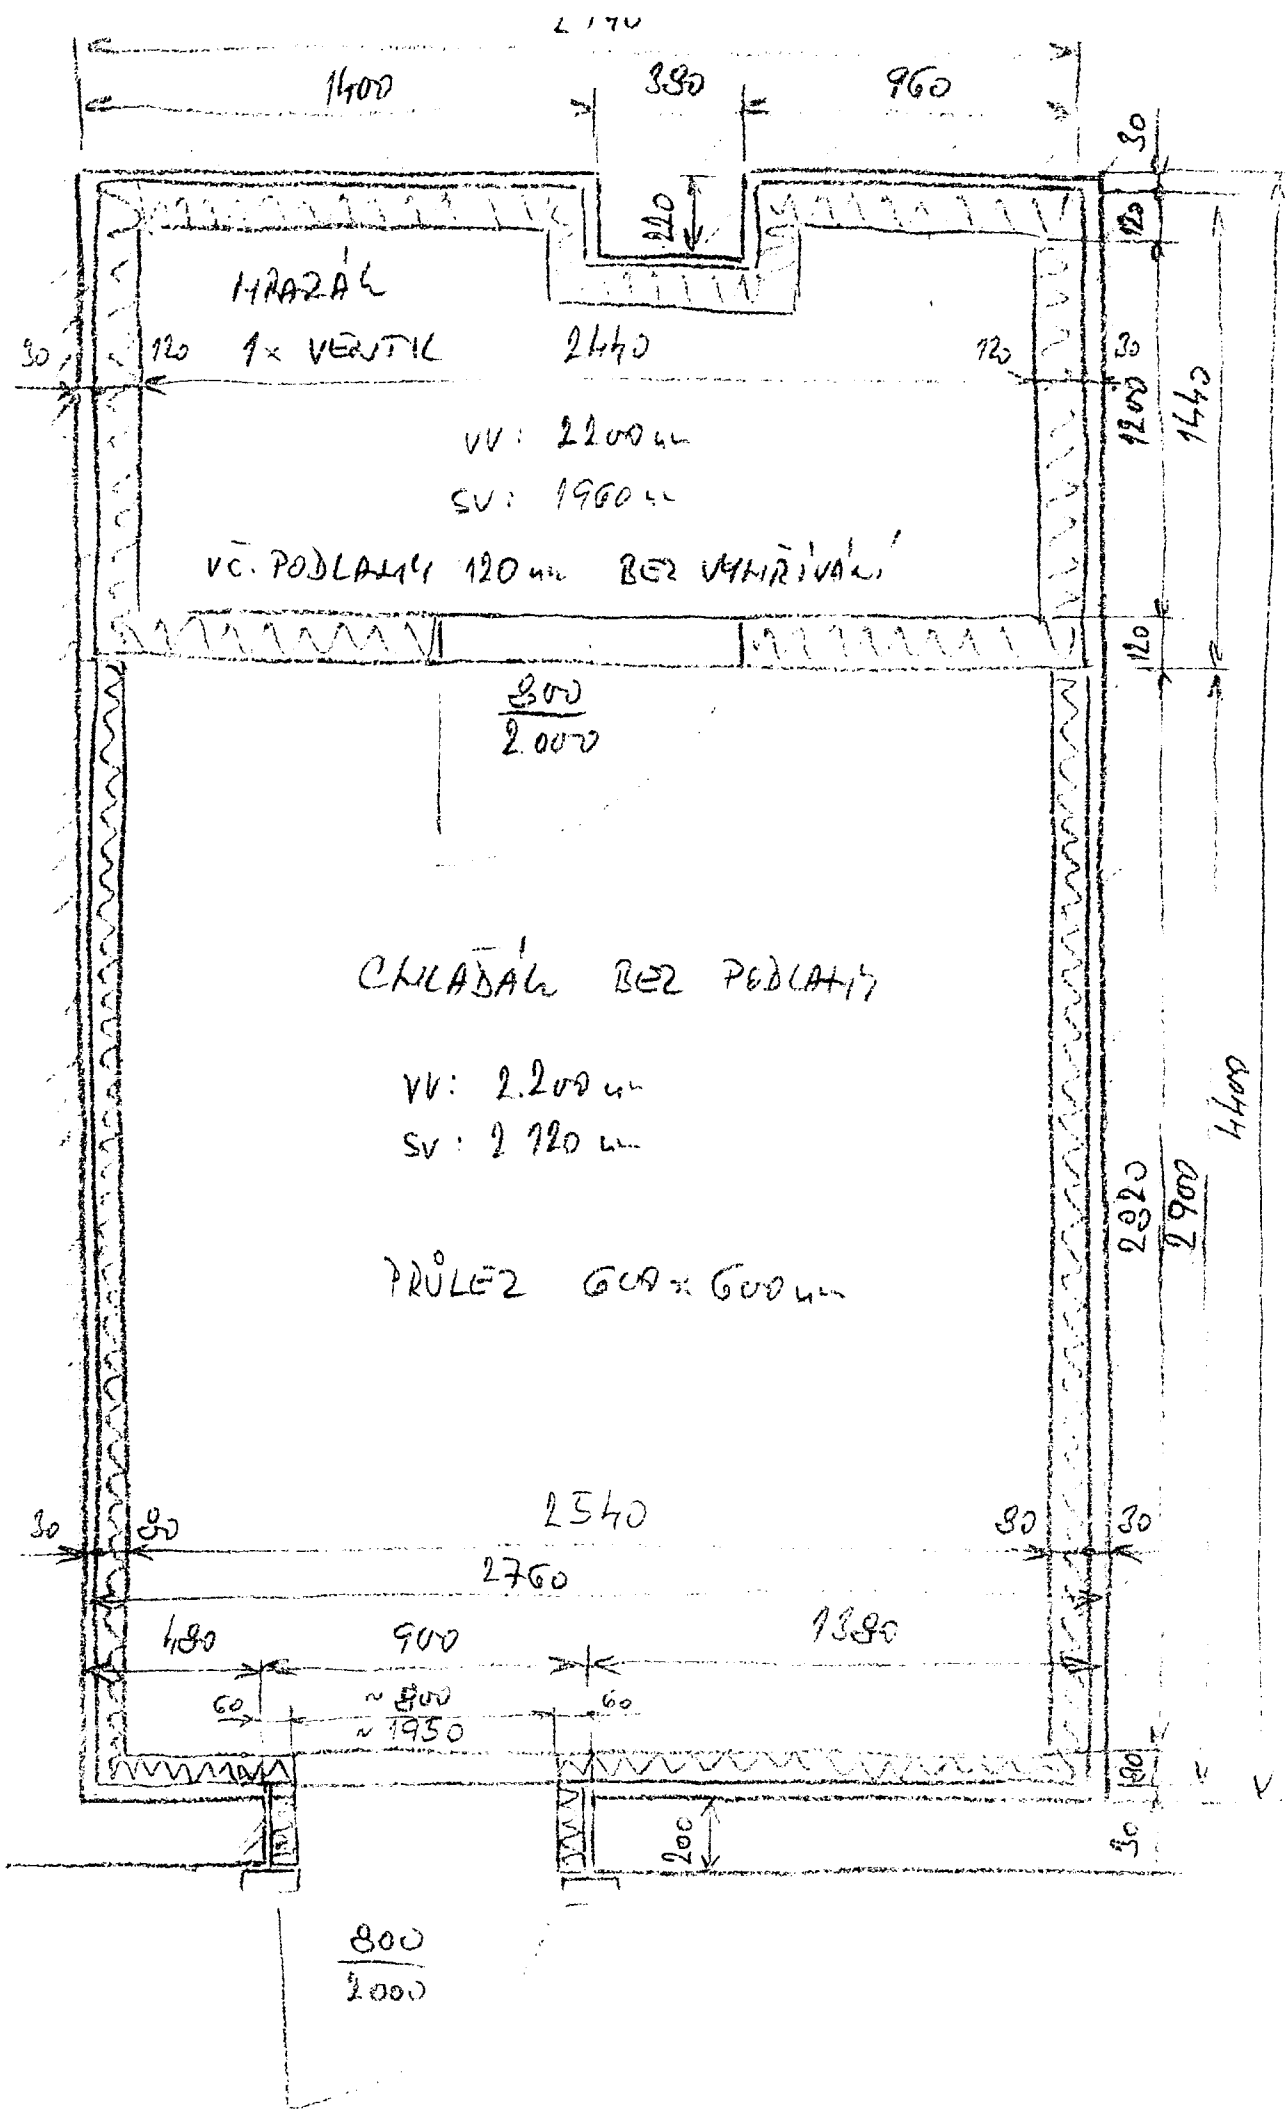 1400
380
960
30
220
120
MRAZÁK
30
120
1x VENTIL
2440
120
30
1200
1440
VV: 2200mm
SV: 1960mm
VČ. PODLAHY 120mm BEZ VYHŘÍVÁNÍ
120
800
2.000
CHLAĎÁK BEZ PODLAHY
VV: 2.200mm
SV: 2 120mm
4400
2820
2900
PRŮLEZ 600x600mm
2540
30
80
80
30
2760
480
900
1380
60
~800
60
~1950
80
200
30
800
2000